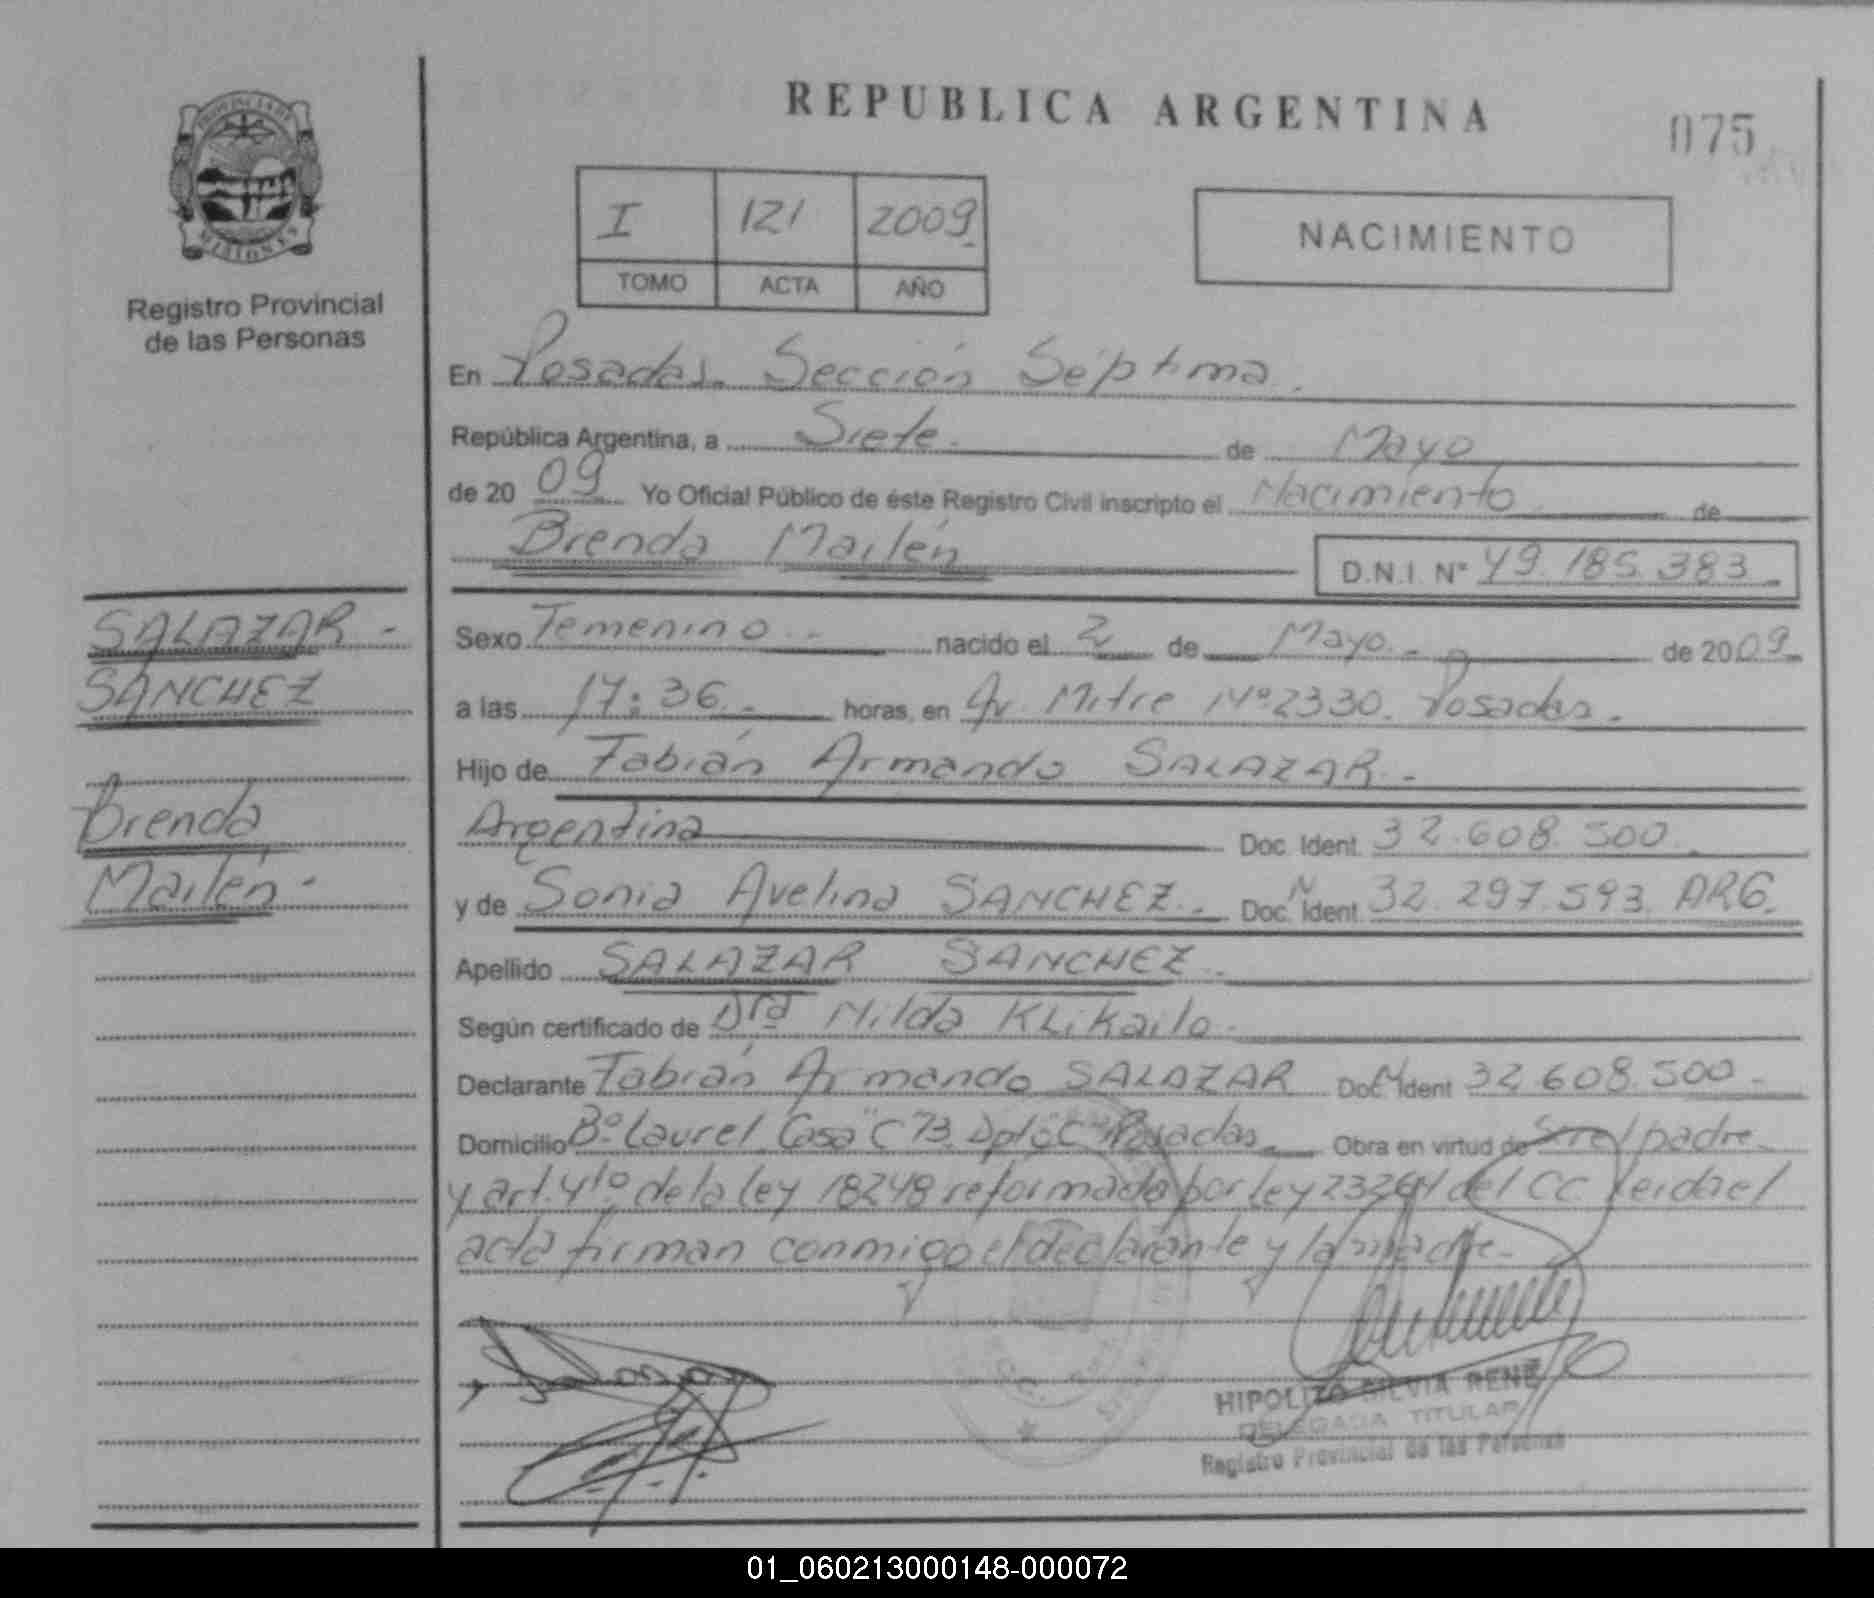 REPUBLICA ARGENTINA
075
PROVINCIA DE
MISIONES
Registro Provincial
de las Personas
I 121 2009
TOMO ACTA AÑO
NACIMIENTO
En Posadas. Sección Séptima.
República Argentina, a Siete. de Mayo
de 20 09 Yo Oficial Público de éste Registro Civil inscripto el Nacimiento de
Brenda Mailén D.N.I. N° 49.185.383
SALAZAR -
SANCHEZ
Brenda
Mailén -
Sexo Femenino nacido el 2 de Mayo de 2009
a las 17:36 horas, en Av. Mitre N°2330. Posadas.
Hijo de Fabián Armando SALAZAR.-
Argentina Doc. Ident. 32.608.500
y de Sonia Avelina SANCHEZ. Doc. Ident. 32.297.593. ARG.
Apellido SALAZAR SANCHEZ.
Según certificado de Dra Nilda KLikailo.
Declarante Fabián Armando SALAZAR Doc. Ident 32.608.500
Domicilio B° Laurel Casa "C 73. Dpto "C" Posadas Obra en virtud de Ser el padre
y art. 4to de la ley 18248 reformada por ley 23264 del CC Leida el
acta firman conmigo el declarante y la madre.
HIPOLITO SILVIA RENE
DELEGADA TITULAR
Registro Provincial de las Personas
01_060213000148-000072